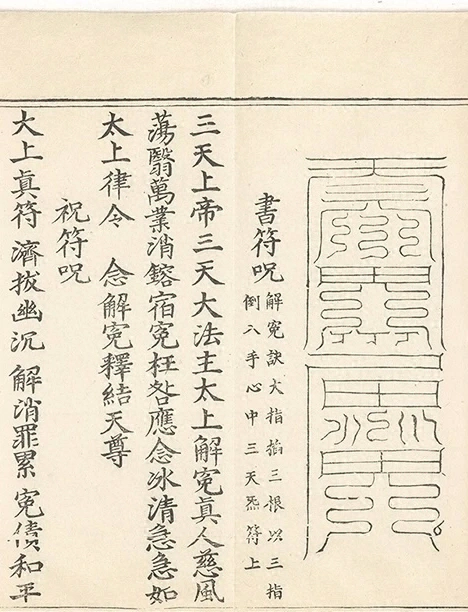 書符呪
解寃訣大指掐三根以三指
倒入手心中三天炁符上
三天上帝三天大法主太上解寃眞人慈風
蕩翳萬業消鎔宿寃枉咎應念冰清急急如
太上律令 念解寃釋結天尊
祝符呪
大上眞符濟拔幽沉 解消罪累寃債和平